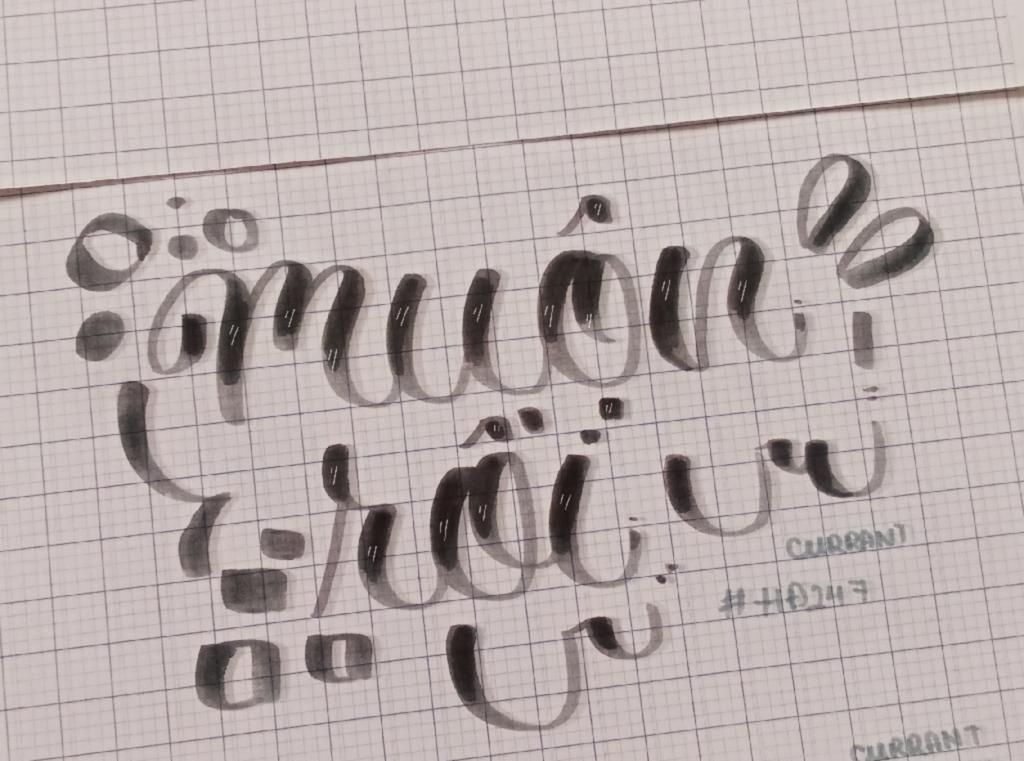 muộn
rồi
CURRANT
#HĐ247
CURRANT